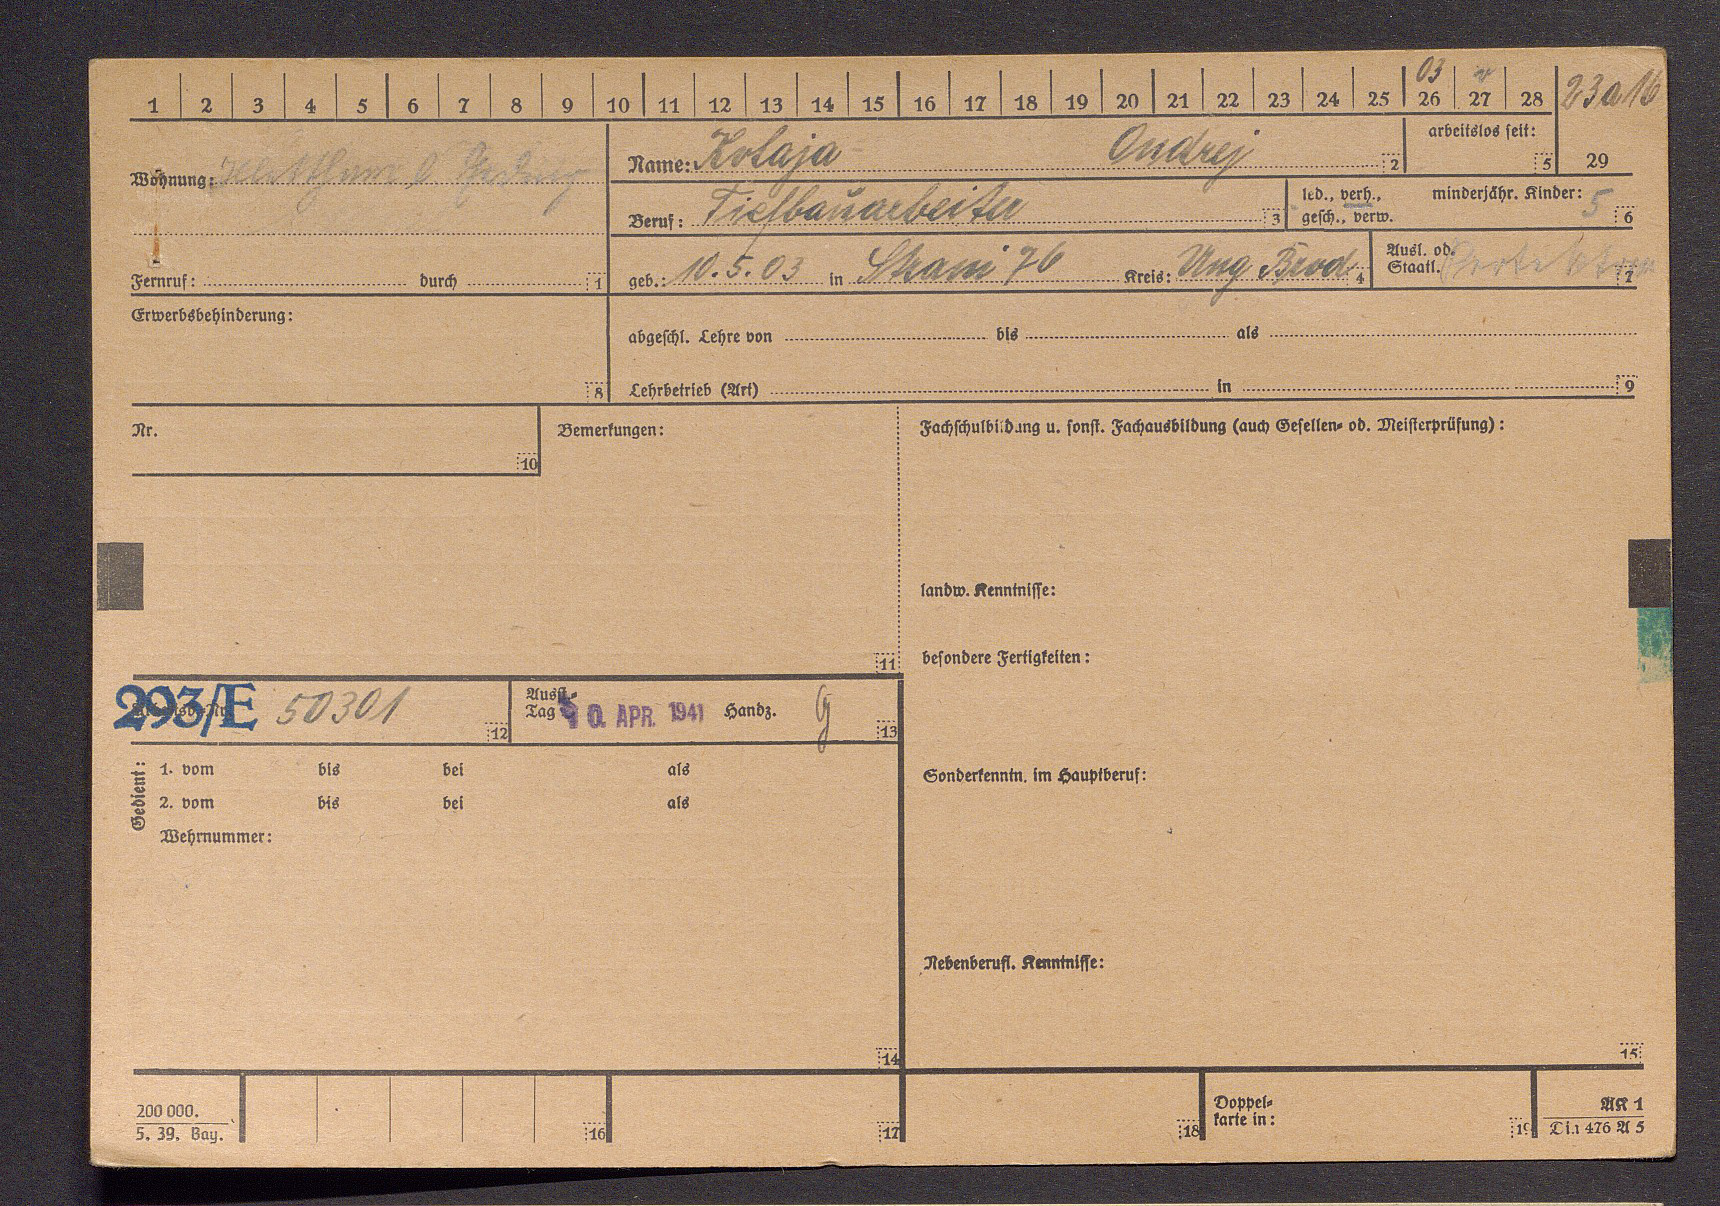 1 2 3 4 5 6 7 8 9 10 11 12 13 14 15 16 17 18 19 20 21 22 23 24 25 26 27 28
03 v 23a16
Wohnung:
Name: Kolaja Ondrej 2
arbeitslos seit: 5
29
Beruf: Tiefbauarbeiter 3
led., verh.,
gesch., verw.
minderjähr. Kinder: 5 6
Fernruf: durch 1
geb.: 10.5.03 in Strani 76 Kreis: Ung Brod 4
Ausl. od.
Staatl. 7
Erwerbsbehinderung:
8
abgeschl. Lehre von bis als
Lehrbetrieb (Art) in 9
Nr.
10
Bemerkungen:
11
Fachschulbildung u. sonst. Fachausbildung (auch Gesellen- od. Meisterprüfung):
landw. Kenntnisse:
besondere Fertigkeiten:
293/E 50301 12
Ausst.-
Tag 10. APR. 1941 Handz. G 13
Gedient:
1. vom bis bei als
2. vom bis bei als
Wehrnummer:
14
Sonderkenntn. im Hauptberuf:
Nebenberufl. Kenntnisse:
15
200 000.
5. 39. Bay.
16
17
18
Doppel-
karte in:
19
AK 1
Din 476 A 5